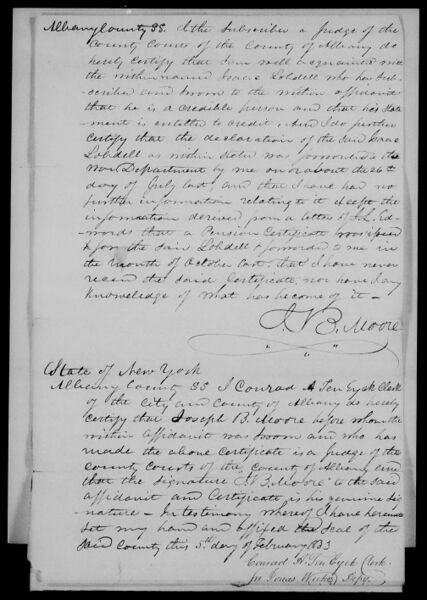 Albany County SS. I the Subscriber a Judge of the
County Courts of the County of Albany do
hereby certify that I am well acquainted with
the within named Isaac Lobdell who has sub-
scribed and sworn to the within affidavit
that he is a credible person and that his state
ment is entitled to credit, And I do further
certify that the declaration of the said Isaac
Lobdell as within stated was forwarded to the
War Department by me on or about the 26th
day of July last, and that I have had no
further information relating to it except the
information derived from a letter of J. L. Ed-
wards that a Pension Certificate was issued
for the said Lobdell & forwarded to me in
the month of October last, that I have never
recd the said Certificate, nor have I any
Knowledge of what has become of it —
J. B. Moore
State of New York
Albany County SS I Conrad A Ten Eyck Clerk
of the City and County of Albany do hereby
certify that Joseph B. Moore before whom the
within affidavit was sworn and who has
made the above Certificate is a Judge of the
County Courts of the County of Albany and
that the signature "J B Moore" to the said
affidavit and Certificate is his genuine sig-
nature — In testimony whereof I have hereunto
set my hand and affixed the seal of the
said County this 5th day of February 1833
Conrad A. Ten Eyck Clerk
pr Jonas Depy.